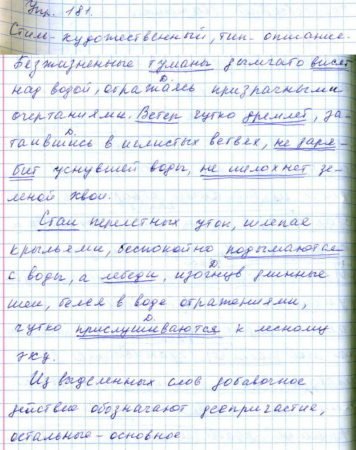 Упр. 181.
Стиль - художественный, тип - описание.
Безжизненные туманы дымчато висят
над водой, отражаясь призрачными
Д.
очертаниями. Ветер чутко дремлет, за-
Д.
таившись в иглистых ветвях, не заря-
бит уснувшей воды, не шелохнет зе-
леной хвои.
Стаи перелетных уток, шлепая
крыльями, беспокойно подымаются
Д.
с воды, а лебеди, изогнув длинные
шеи, белея в воде отражениями,
Д.
чутко прислушиваются к лесному
эху.
Из выделенных слов добавочное
действие обозначают деепричастие,
остальные - основное